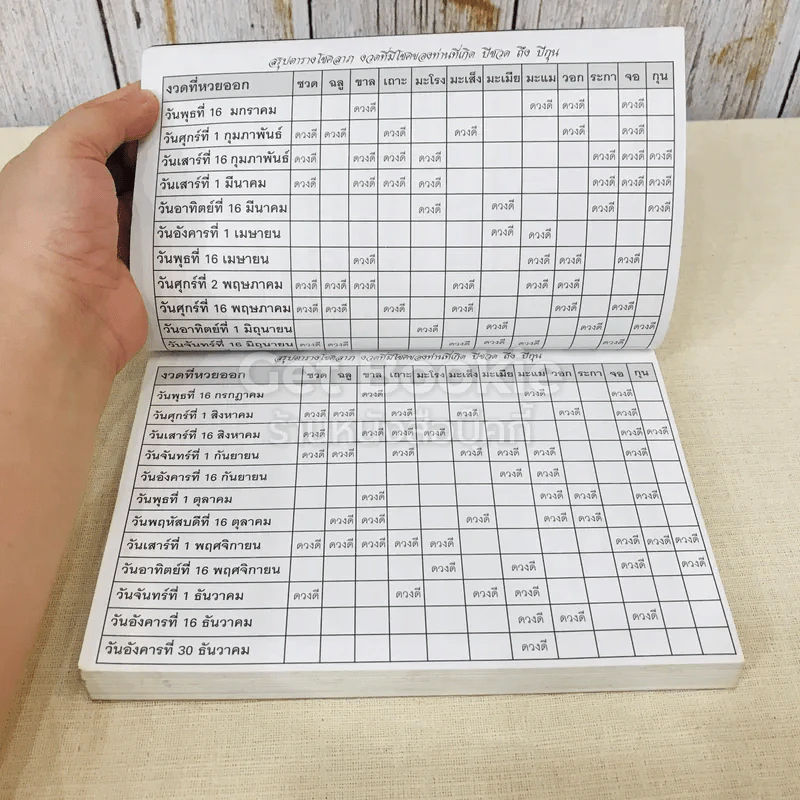 สรุปตารางโชคลาภ งวดที่มีโชคของท่านที่เกิด ปีชวด ถึง ปีกุน
งวดที่หวยออก ชวด ฉลู ขาล เถาะ มะโรง มะเส็ง มะเมีย มะแม วอก ระกา จอ กุน
วันพุธที่ 16 มกราคม ดวงดี ดวงดี ดวงดี ดวงดี
วันศุกร์ที่ 1 กุมภาพันธ์ ดวงดี ดวงดี ดวงดี ดวงดี ดวงดี ดวงดี
วันเสาร์ที่ 16 กุมภาพันธ์ ดวงดี ดวงดี ดวงดี ดวงดี ดวงดี ดวงดี ดวงดี
วันเสาร์ที่ 1 มีนาคม ดวงดี ดวงดี ดวงดี ดวงดี ดวงดี ดวงดี ดวงดี
วันอาทิตย์ที่ 16 มีนาคม ดวงดี ดวงดี ดวงดี ดวงดี
วันอังคารที่ 1 เมษายน ดวงดี ดวงดี
วันพุธที่ 16 เมษายน ดวงดี ดวงดี ดวงดี ดวงดี
วันศุกร์ที่ 2 พฤษภาคม ดวงดี ดวงดี ดวงดี ดวงดี ดวงดี ดวงดี
วันศุกร์ที่ 16 พฤษภาคม ดวงดี ดวงดี ดวงดี ดวงดี ดวงดี ดวงดี
วันอาทิตย์ที่ 1 มิถุนายน ดวงดี ดวงดี ดวงดี ดวงดี
วันจันทร์ที่ 16 มิถุนายน ดวงดี ดวงดี ดวงดี ดวงดี ดวงดี ดวงดี ดวงดี
สรุปตารางโชคลาภ งวดที่มีโชคของท่านที่เกิด ปีชวด ถึง ปีกุน
งวดที่หวยออก ชวด ฉลู ขาล เถาะ มะโรง มะเส็ง มะเมีย มะแม วอก ระกา จอ กุน
วันพุธที่ 16 กรกฎาคม ดวงดี ดวงดี ดวงดี
วันศุกร์ที่ 1 สิงหาคม ดวงดี ดวงดี ดวงดี ดวงดี ดวงดี ดวงดี
วันเสาร์ที่ 16 สิงหาคม ดวงดี ดวงดี ดวงดี ดวงดี ดวงดี ดวงดี
วันจันทร์ที่ 1 กันยายน ดวงดี ดวงดี ดวงดี ดวงดี ดวงดี ดวงดี ดวงดี
วันอังคารที่ 16 กันยายน ดวงดี ดวงดี
วันพุธที่ 1 ตุลาคม ดวงดี ดวงดี ดวงดี ดวงดี
วันพฤหัสบดีที่ 16 ตุลาคม ดวงดี ดวงดี ดวงดี ดวงดี ดวงดี
วันเสาร์ที่ 1 พฤศจิกายน ดวงดี ดวงดี ดวงดี ดวงดี ดวงดี ดวงดี ดวงดี ดวงดี
วันอาทิตย์ที่ 16 พฤศจิกายน ดวงดี ดวงดี ดวงดี ดวงดี
วันจันทร์ที่ 1 ธันวาคม ดวงดี ดวงดี ดวงดี ดวงดี
วันอังคารที่ 16 ธันวาคม ดวงดี ดวงดี ดวงดี
วันอังคารที่ 30 ธันวาคม ดวงดี